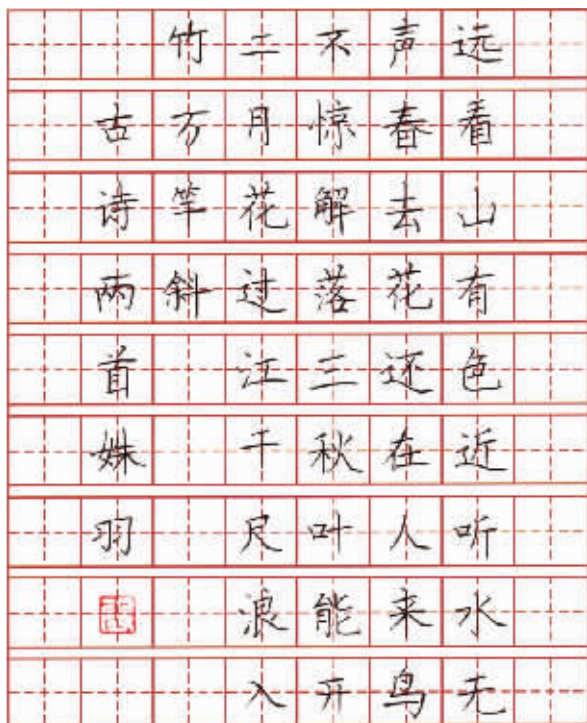 远看山有色近听水无
声春去花还在人来鸟
不惊解落三秋叶能开
二月花过江千尺浪入
竹万竿斜
古诗两首姝羽